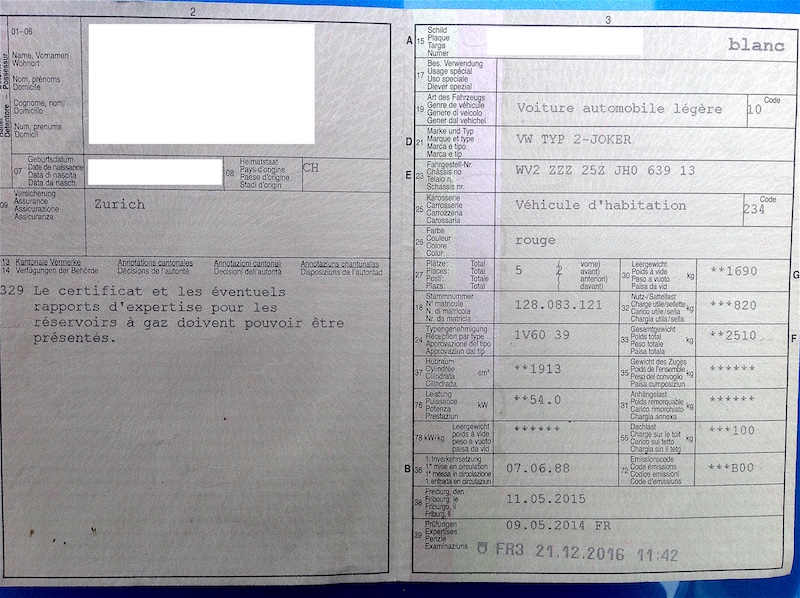 2
01-06
Name, Vornamen
Wohnort
Nom, prénoms
Domicile
Cognome, nom.
Domicilio
Num, prenums
Domicil
Possessur
07
Geburtsdatum
Date de naissance
Data di nascita
Data da nasch.
08
Heimatstaat
Pays d'origine
Paese d'origine
Stadi d'origin
CH
09
Versicherung
Assurance
Assicurazione
Assicuranza
Zurich
13 Kantonale Vermerke Annotations cantonales Annotazioni cantonali Annotaziuns chantunalas
14 Verfügungen der Behörde Décisions de l'autorité Decisioni dell'autorità Disposiziuns da l'autoritad
329 Le certificat et les éventuels
rapports d'expertise pour les
réservoirs à gaz doivent pouvoir être
présentés.
3
A 15
Schild
Plaque
Targa
Numer
blanc
17
Bes. Verwendung
Usage spécial
Uso speciale
Diever spezial
19
Art des Fahrzeugs
Genre de véhicule
Genere di veicolo
Gener dal vehichel
Voiture automobile légère
Code
10
D 21
Marke und Typ
Marque et type
Marca e tipo
Marca e tip
VW TYP 2-JOKER
E 23
Fahrgestell-Nr.
Châssis no
Telaio n.
Schassis nr.
WV2 ZZZ 25Z JH0 639 13
25
Karosserie
Carrosserie
Carrozzeria
Carossaria
Véhicule d'habitation
Code
234
26
Farbe
Couleur
Colore
Colur
rouge
27
Plätze: Total ( vorne)
Places: Total ( avant)
Posti: Totale ( anteriori)
Plazs: Total ( davant)
5 2
30
Leergewicht
Poids à vide
Peso a vuoto
Paisa da vid
kg
**1690
G
18
Stammnummer
N° matricule
N. di matricola
Nr. da matricla
128.083.121
32
Nutz-/Sattellast
Charge utile/sellette
Carico utile/sella
Chargia utila/sella
kg
***820
24
Typengenehmigung
Réception par type
Approvazione del tipo
Approvaziun dal tip
1V60 39
33
Gesamtgewicht
Poids total
Peso totale
Paisa totala
kg
**2510
F
37
Hubraum
Cylindrée
Cilindrata
Cilindrada
cm³
**1913
35
Gewicht des Zuges
Poids de l'ensemble
Peso del convoglio
Paisa cumposiziun
kg
******
76
Leistung
Puissance
Potenza
Prestaziun
kW
**54.0
31
Anhängelast
Poids remorquable
Carico rimorchiato
Chargia annexa
kg
******
78 kW/kg
Leergewicht
poids à vide
peso a vuoto
paisa da vid
******
55
Dachlast
Charge sur le toit
Carico sul tetto
Chargia sin il tetg
kg
***100
B 36
1. Inverkehrsetzung
1re mise en circulation
1a messa in circolazione
1. entrada en circulaziun
07.06.88
72
Emissionscode
Code émissions
Codice emissioni
Code d'emissiuns
***B00
38
Freiburg, den
Fribourg, le
Friburgo, il
Friburg, il
11.05.2015
39
Prüfungen
Expertises
Perizie
Examinaziuns
09.05.2014 FR
FR3 21.12.2016 11:42